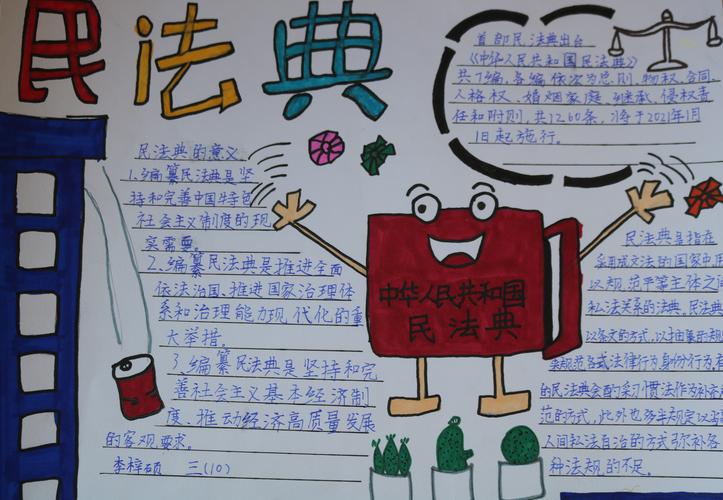 民法典
首部民法典出台
《中华人民共和国民法典》
共7编,各编依次为总则、物权、合同、
人格权、婚姻家庭、继承、侵权责
任和附则,共1260条,将于2021年1月
1日起施行。
民法典的意义
1.编纂民法典是坚
持和完善中国特色
社会主义制度的现
实需要。
2.编纂民法典是推进全面
依法治国、推进国家治理体
系和治理能力现代化的重
大举措。
3.编纂民法典是坚持和完
善社会主义基本经济制
度、推动经济高质量发展
的客观要求。
李梓硕 三(10)
中华人民共和国
民法典
民法典是指在
采用成文法的国家中用
以规范平等主体之间
私法关系的法典。民法典
以条文的方式,以抽象的规
来规范各式法律行为身份行为,有
的民法典会配采习惯法作为补充
范的方式,此外也多半规定以
人间私法自治的方式弥补各
种法规的不足。